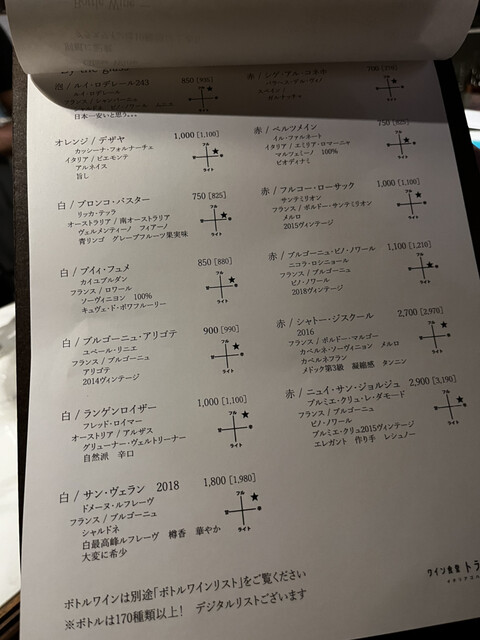 By the glass
泡 / ルイ・ロデレール243 850 [935]
ルイ・ロデレール
フランス / シャンパーニュ
日本一安いと思う。。。
オレンジ / デザヤ 1,000 [1,100]
カッシーナ・フォルナーチェ
イタリア / ピエモンテ
アルネイス
旨し
フル
ライト
白 / ブロンコ・バスター 750 [825]
リッカ・テッラ
オーストラリア / 南オーストラリア
ヴェルメンティーノ フィアーノ
青リンゴ グレープフルーツ果実味
フル
ライト
白 / プイィ・フュメ 850 [880]
カイユブルダン
フランス / ロワール
ソーヴィニヨン 100%
キュヴェ・ド・ボワフルーリー
フル
ライト
白 / ブルゴーニュ・アリゴテ 900 [990]
ユベール・リニエ
フランス / ブルゴーニュ
アリゴテ
2014ヴィンテージ
フル
ライト
白 / ランゲンロイザー 1,000 [1,100]
フレッド・ロイマー
オーストリア / アルザス
グリューナー・ヴェルトリーナー
自然派 辛口
フル
ライト
白 / サン・ヴェラン 2018 1,800 [1,980]
ドメーヌ・ルフレーヴ
フランス / ブルゴーニュ
シャルドネ
白最高峰ルフレーヴ 樽香 華やか
大変に希少
フル
ライト
700 [770]
赤 / ベルツメイン 750 [825]
イル・ファルネート
イタリア / エミリア・ロマーニャ
マルフェミーノ 100%
ビオディナミ
フル
ライト
赤 / フルコー・ローサック 1,000 [1,100]
サンテミリオン
フランス / ボルドー・サンテミリオン
メルロ
2015ヴィンテージ
フル
ライト
赤 / ブルゴーニュ・ピノ・ノワール 1,100 [1,210]
ニコラ・ロシニョール
フランス / ブルゴーニュ
ピノ・ノワール
2018ヴィンテージ
フル
ライト
赤 / シャトー・ジスクール 2,700 [2,970]
2016
フランス / ボルドー・マルゴー
カベルネ・ソーヴィニョン メルロ
カベルネフラン
メドック第3級 凝縮感 タンニン
フル
ライト
赤 / ニュイ・サン・ジョルジュ 2,900 [3,190]
プルミエ・クリュ・レ・ダモード
フランス / ブルゴーニュ
ピノ・ノワール
プルミエ・クリュ2015ヴィンテージ
エレガント 作り手 レシュノー
フル
ライト
ボトルワインは別途「ボトルワインリスト」をご覧ください
※ボトルは170種類以上! デジタルリストございます
ワイン食堂 トラ